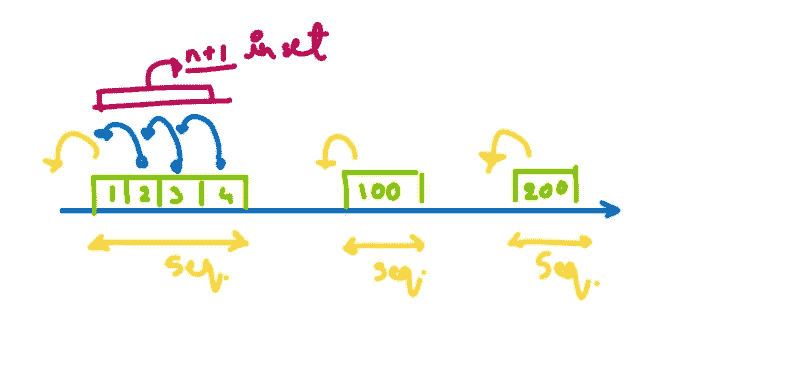 n+1 in set
1 2 3 4
100
200
seq.
seq.
seq.